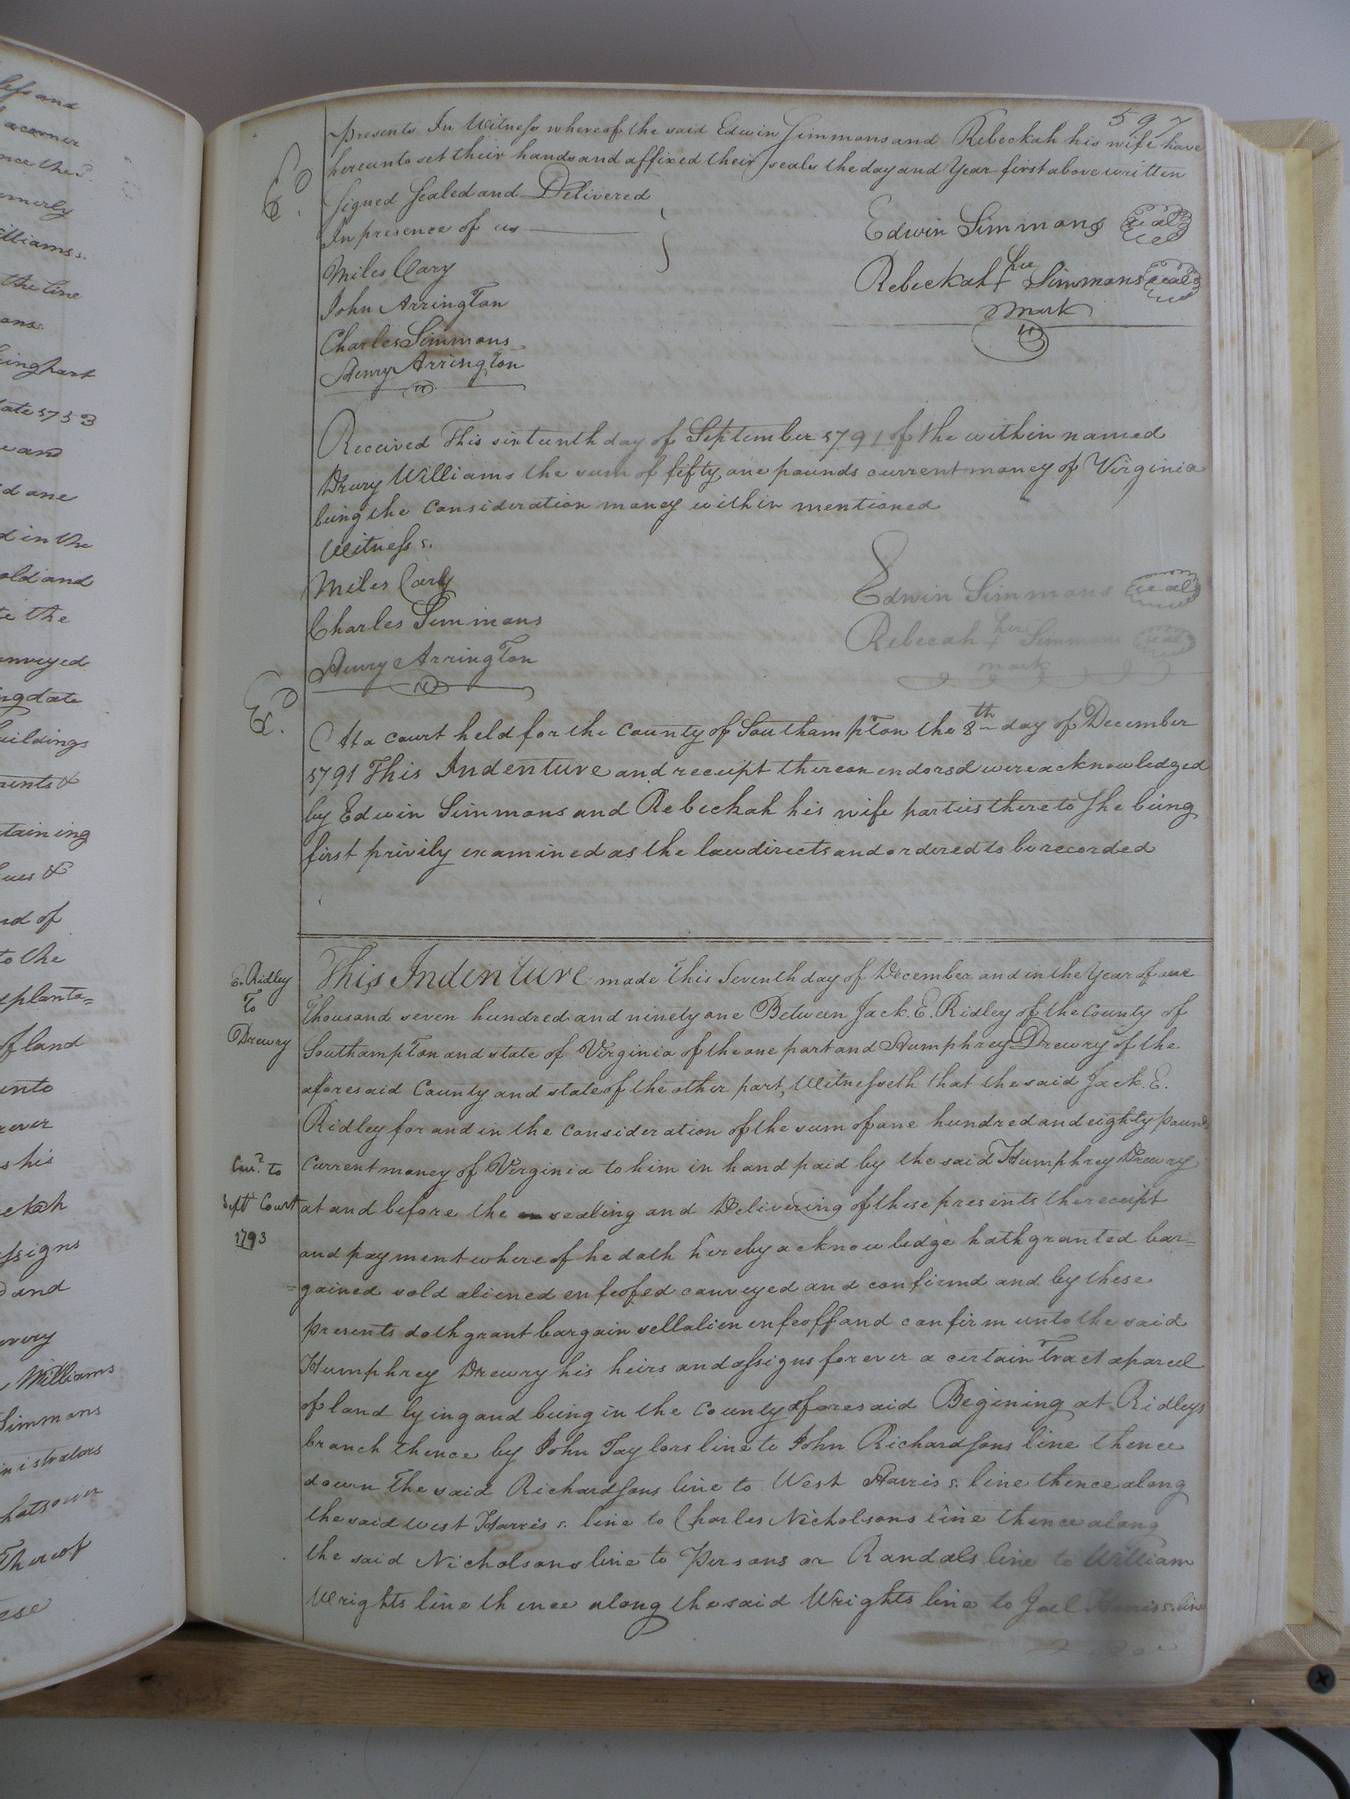 597
presents In Witness whereof the said Edwin Simmons and Rebeckah his wife have
hereunto set their hands and affixed their seals the day and Year first above written
Signed Sealed and Delivered
In presence of us
Edwin Simmons Seal
Miles Cary
Rebeckah her Simmons Seal
mark
John Arrington
Charles Simmons
Henry Arrington
Received This sixteenth day of September 1791 of the within named
Drury Williams the sum of fifty one pounds current money of Virginia
being the Consideration money within mentioned
Witness s.
Miles Cary
Edwin Simmons Seal
Charles Simmons
Rebecah her Simmons Seal
mark
Henry Arrington
At a court held for the County of Southampton the 8th day of December
1791 This Indenture and receipt thereon endorsd were acknowledged
by Edwin Simmons and Rebeckah his wife parties thereto She being
first privily examined as the law directs and ordered to be recorded
E. Ridley
To
Drewry
This Indenture made this Seventh day of December and in the Year of one
Thousand seven hundred and ninety one Between Jack. E. Ridley of the County of
Southampton and state of Virginia of the one part and Humphrey Drewry of the
aforesaid County and state of the other part, Witnesseth that the said Jack. E.
Ridley for and in the consideration of the sum of one hundred and eighty pounds
Current money of Virginia to him in hand paid by the said Humphrey Drewry
to
Sept Court
1793
at and before the sealing and Delivering of these presents the receipt
and payment whereof he doth hereby acknowledge hath granted bar=
=gained sold aliened enfeofed conveyed and confirmd and by these
presents doth grant bargain sell alien enfeoff and confirm unto the said
Humphrey Drewry his heirs and assigns forever a certain Tract aparcel
of land lying and being in the County aforesaid Begining at Ridleys
branch thence by John Taylors line to John Richardsons line thence
down The said Richardsons line to West Harris s. line thence along
the said West Harris s. line to Charles Nicholsons line thence along
the said Nicholsons line to Persons or Randals line to William
Wrights line thence along the said Wrights line to Joel Harris s. line
less and
a corner
ence the
ormerly
illiams s.
the line
ons.
being part
date 1753
and
d one
d in the
old and
te the
onveyed
ing date
uildings
ments &
taining
ues &
nd of
to the
splanta=
of land
unto
ever
s his
eckah
ssigns
and
very
Williams
Simmons
inistrators
hatsoever
Thereof
ese